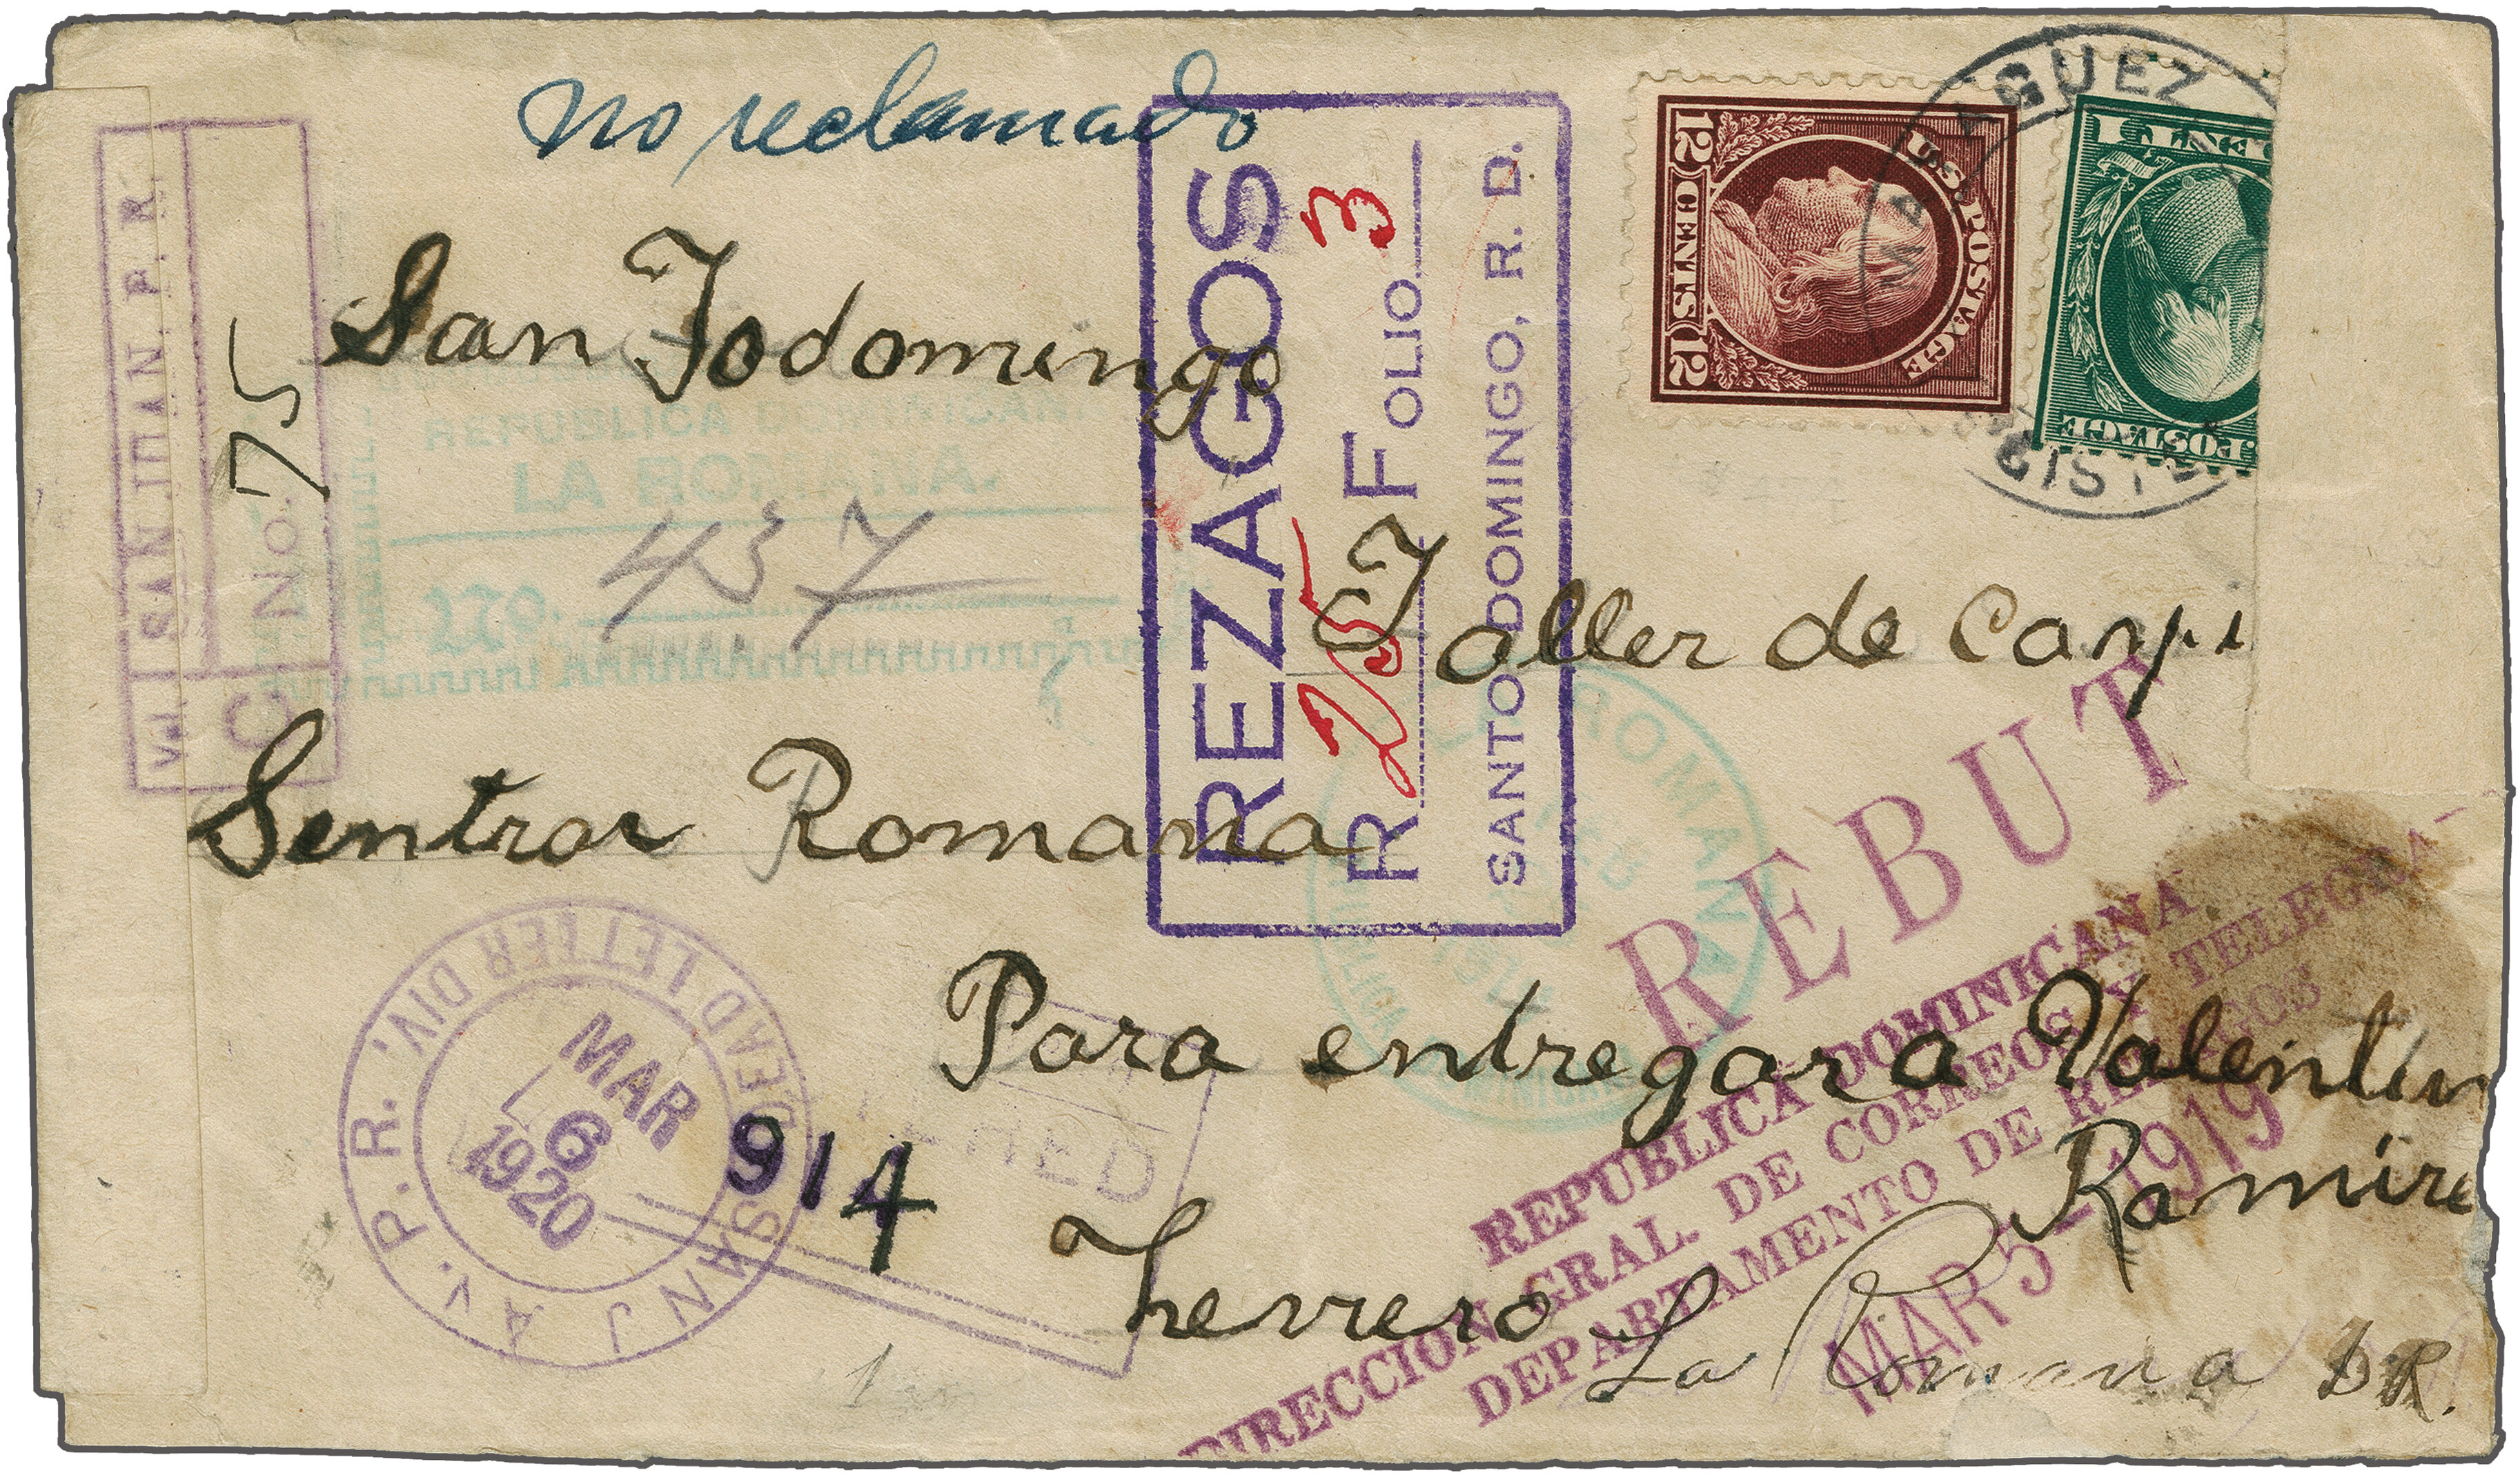 no reclamado
MAYAGUEZ
12 CENTS 12
U.S. POSTAGE
POSTAGE
SAN JUAN, P. R.
No. 75
San Todomingo
REPUBLICA DOMINICANA
LA ROMANA.
No. 437
REZAGOS
R FOLIO 3
SANTO DOMINGO, R. D.
Taller de Carpi
Sentrar Romana
LA ROMANA
REBUT
REPUBLICA DOMINICANA
DIRECCION GRAL. DE CORREOS Y TELEGRA-
DEPARTAMENTO DE REZAGOS
MAR 5- 1919
Para entregara Valentin
Ramire
Herrero
La Romana DR.
SAN JUAN P. R. DEAD LETTER DIV.
MAR
6
1920
914